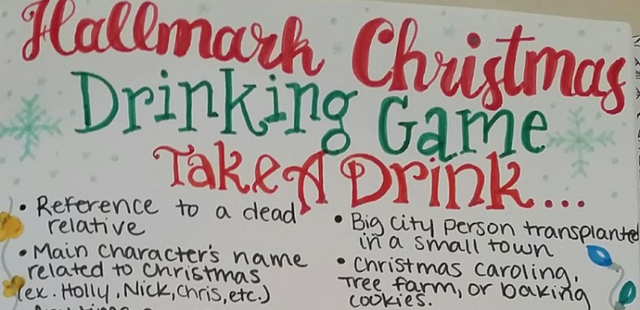 Hallmark Christmas
Drinking Game
Take A Drink...
• Reference to a dead
relative
• Main Character's name
related to Christmas
(ex. Holly, Nick, Chris, etc.)
• Big City Person transplanted
in a small town
• Christmas Caroling,
Tree farm, or baking
cookies.